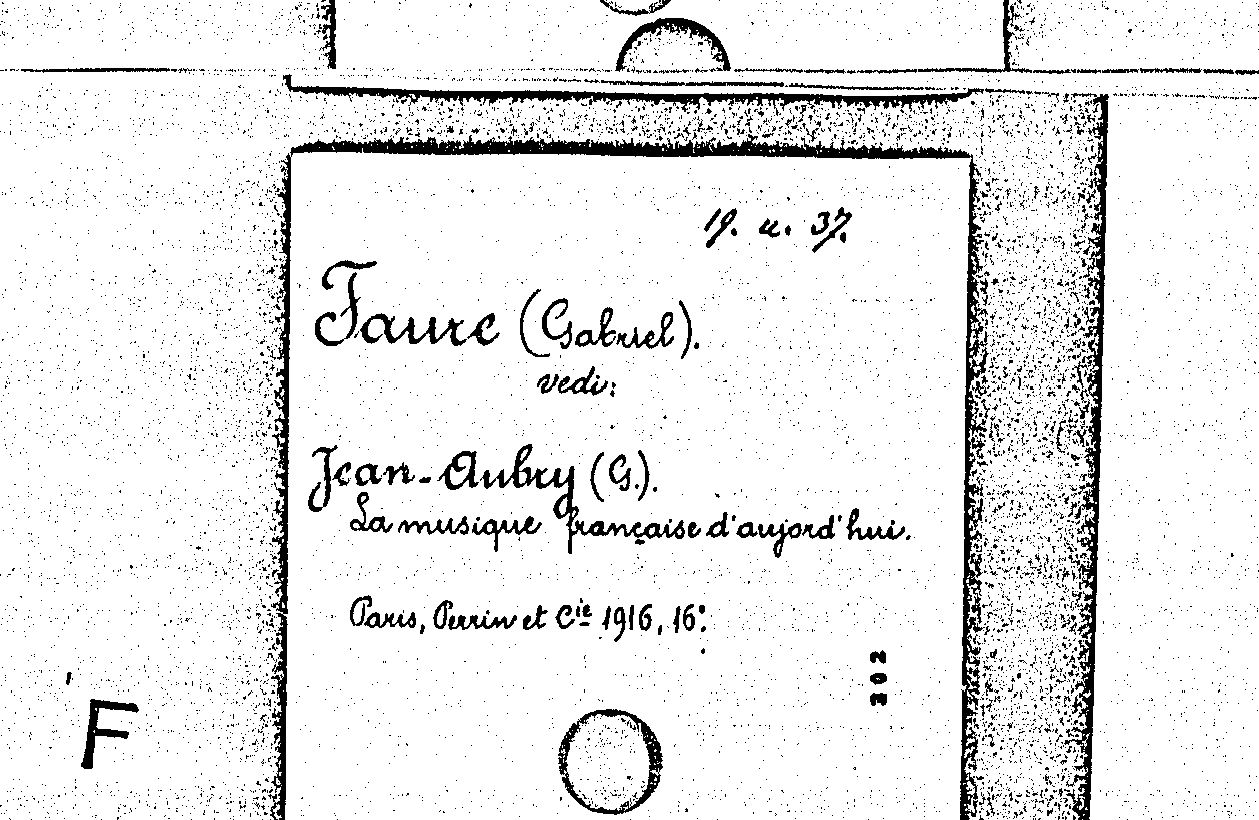 19. u. 37.
Faure (Gabriel).
vedi:
Jean-Aubry (G.).
La musique française d'aujord'hui.
Paris, Perrin et Cie 1916, 16°.
302
F